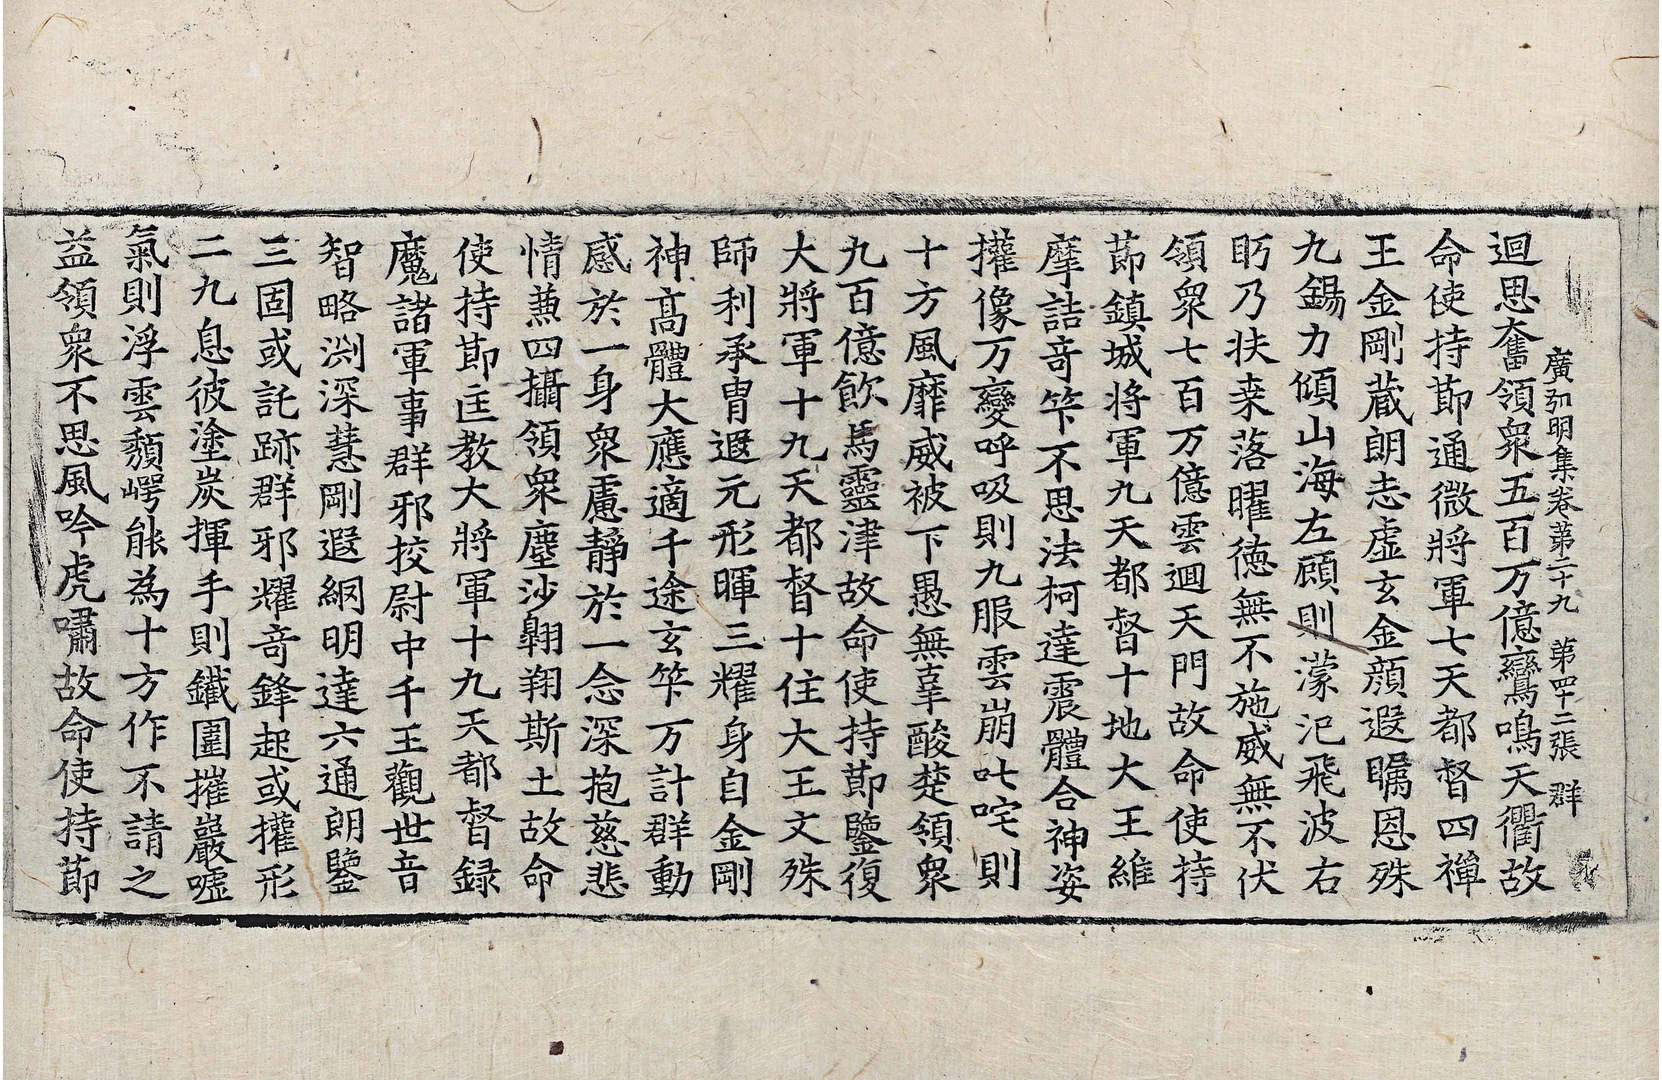 廣弘明集卷第二十九 第四十二張 群
迴思奮領衆五百万億鸞鳴天衢故
命使持莭通微將軍七天都督四禪
王金剛藏朗志虛玄金顔遐矚恩殊
九錫力傾山海左顧則濛汜飛波右
眄乃扶桒落曜德無不施威無不伏
領衆七百万億雲迴天門故命使持
莭鎮城將軍九天都督十地大王維
摩詰竒笇不思法柯達震體合神姿
攉像万變呼吸則九服雲崩叱咤則
十方風靡威被下愚無辜酸楚領衆
九百億飮馬靈津故命使持莭鑒復
大將軍十九天都督十住大王文殊
師利承胄遐元形暉三耀身自金剛
神髙體大應適千途玄笇万計群動
感於一身衆慮靜於一念深抱慈悲
情蕪四攝領衆塵沙翱翔斯土故命
使持莭匡教大將軍十九天都督録
魔諸軍事群邪挍尉中千王觀世音
智略渕深慧剛遐網明達六通朗鑒
三固或託跡群邪耀竒鋒起或攉形
二九息彼塗炭揮手則鐵圍摧巖噓
氣則浮雲頽崿能為十方作不請之
益領衆不思風吟虎嘯故命使持莭